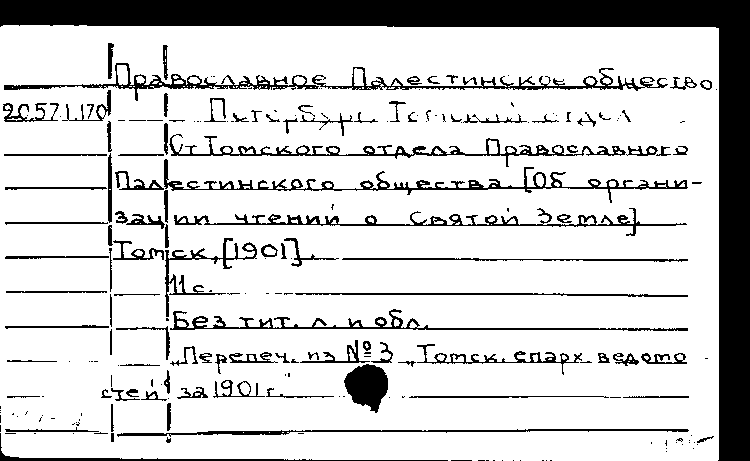 Православное Палестинское общество
20.571.170 Петербург. Томский отдел
От Томского отдела Православного
Палестинского общества. [Об органи-
зации чтений о Святой Земле].
Томск, [1901].
11 с.
Без тит. л. и обл.
„Перепеч. из № 3 „Томск. епарх. ведомо
стей" за 1901 г."